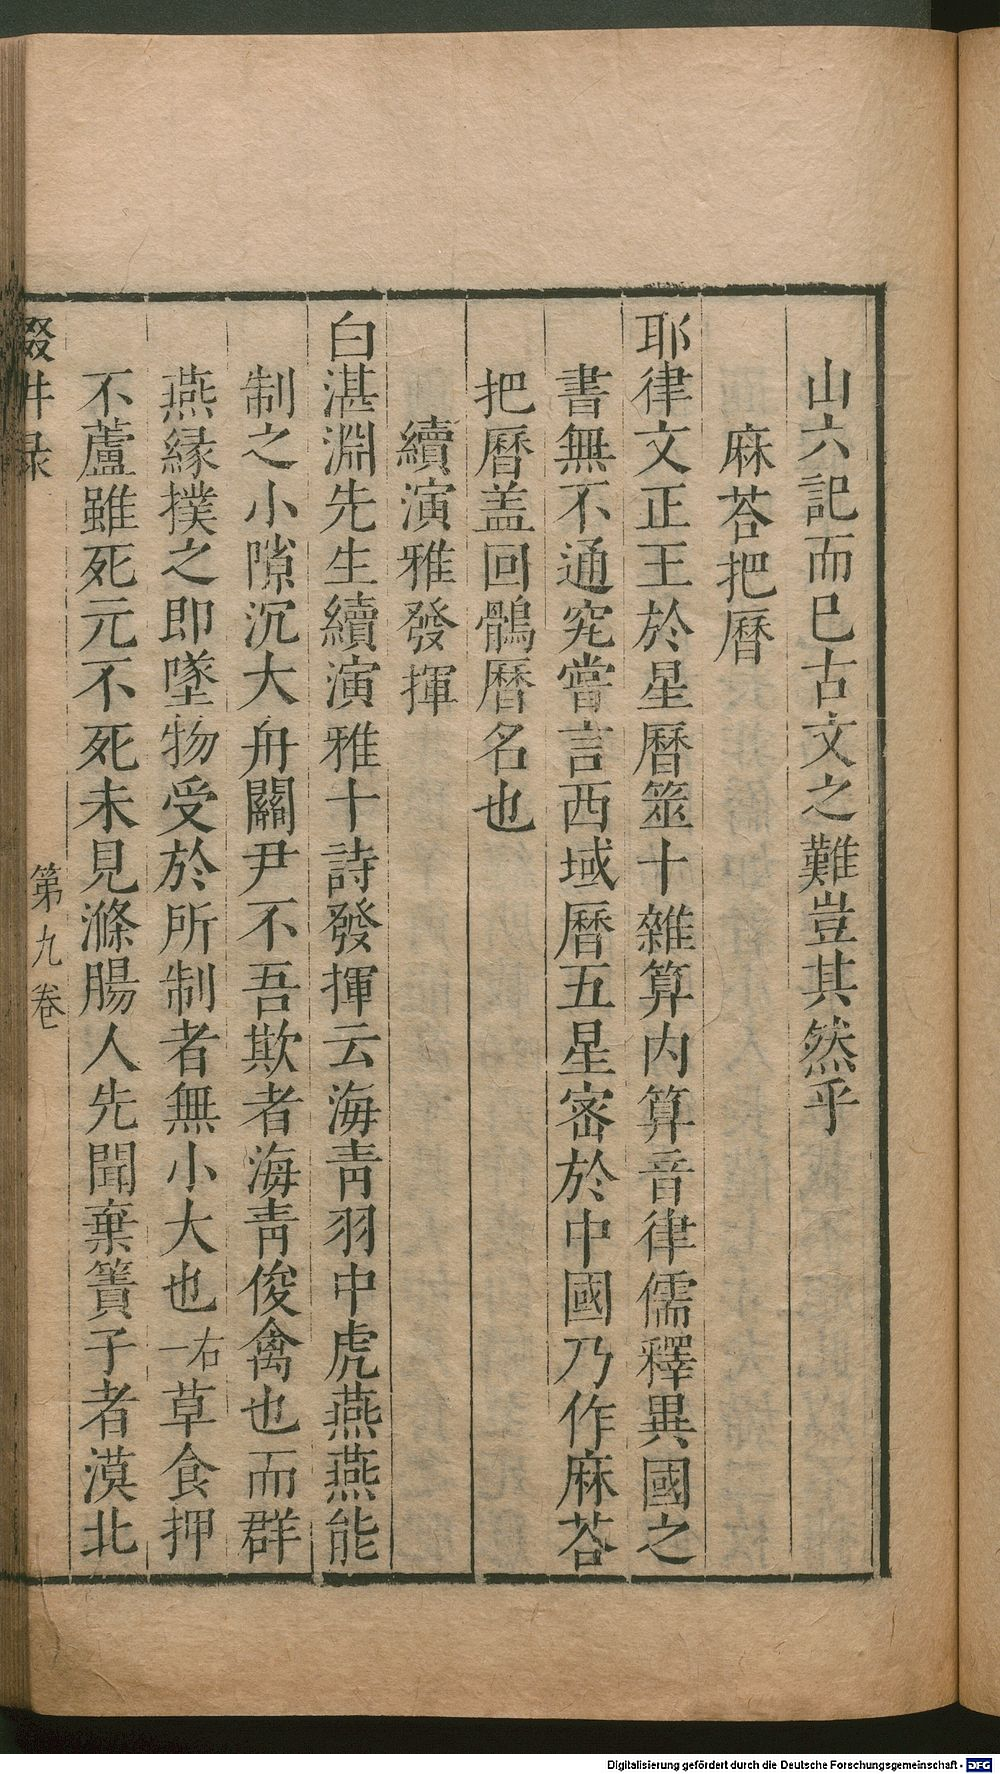 山六記而已古文之難豈其然乎
麻荅把曆
耶律文正王於星曆筮十雜算内算音律儒釋異國之
書無不通究嘗言西域曆五星密於中國乃作麻荅
把曆盖回鶻曆名也
續演雅發揮
白湛淵先生續演雅十詩發揮云海青羽中虎燕燕能
制之小隙沉大舟關尹不吾欺者海青俊禽也而群
燕縁撲之即墜物受於所制者無小大也右一草食押
不蘆雖死元不死未見滌腸人先聞棄簀子者漠北
輟畊录 第九卷
Digitalisierung gefördert durch die Deutsche Forschungsgemeinschaft - DFG